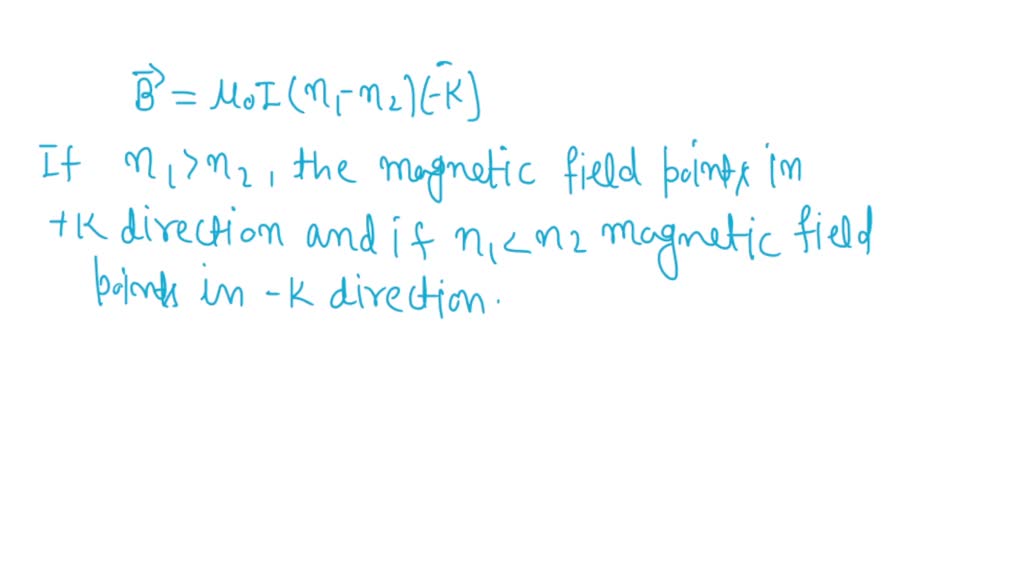 B⃗ = μ₀I(n₁-n₂)(-K̄)
If n₁>n₂, the magnetic field points in
+K direction and if n₁<n₂ magnetic field
points in -K direction.